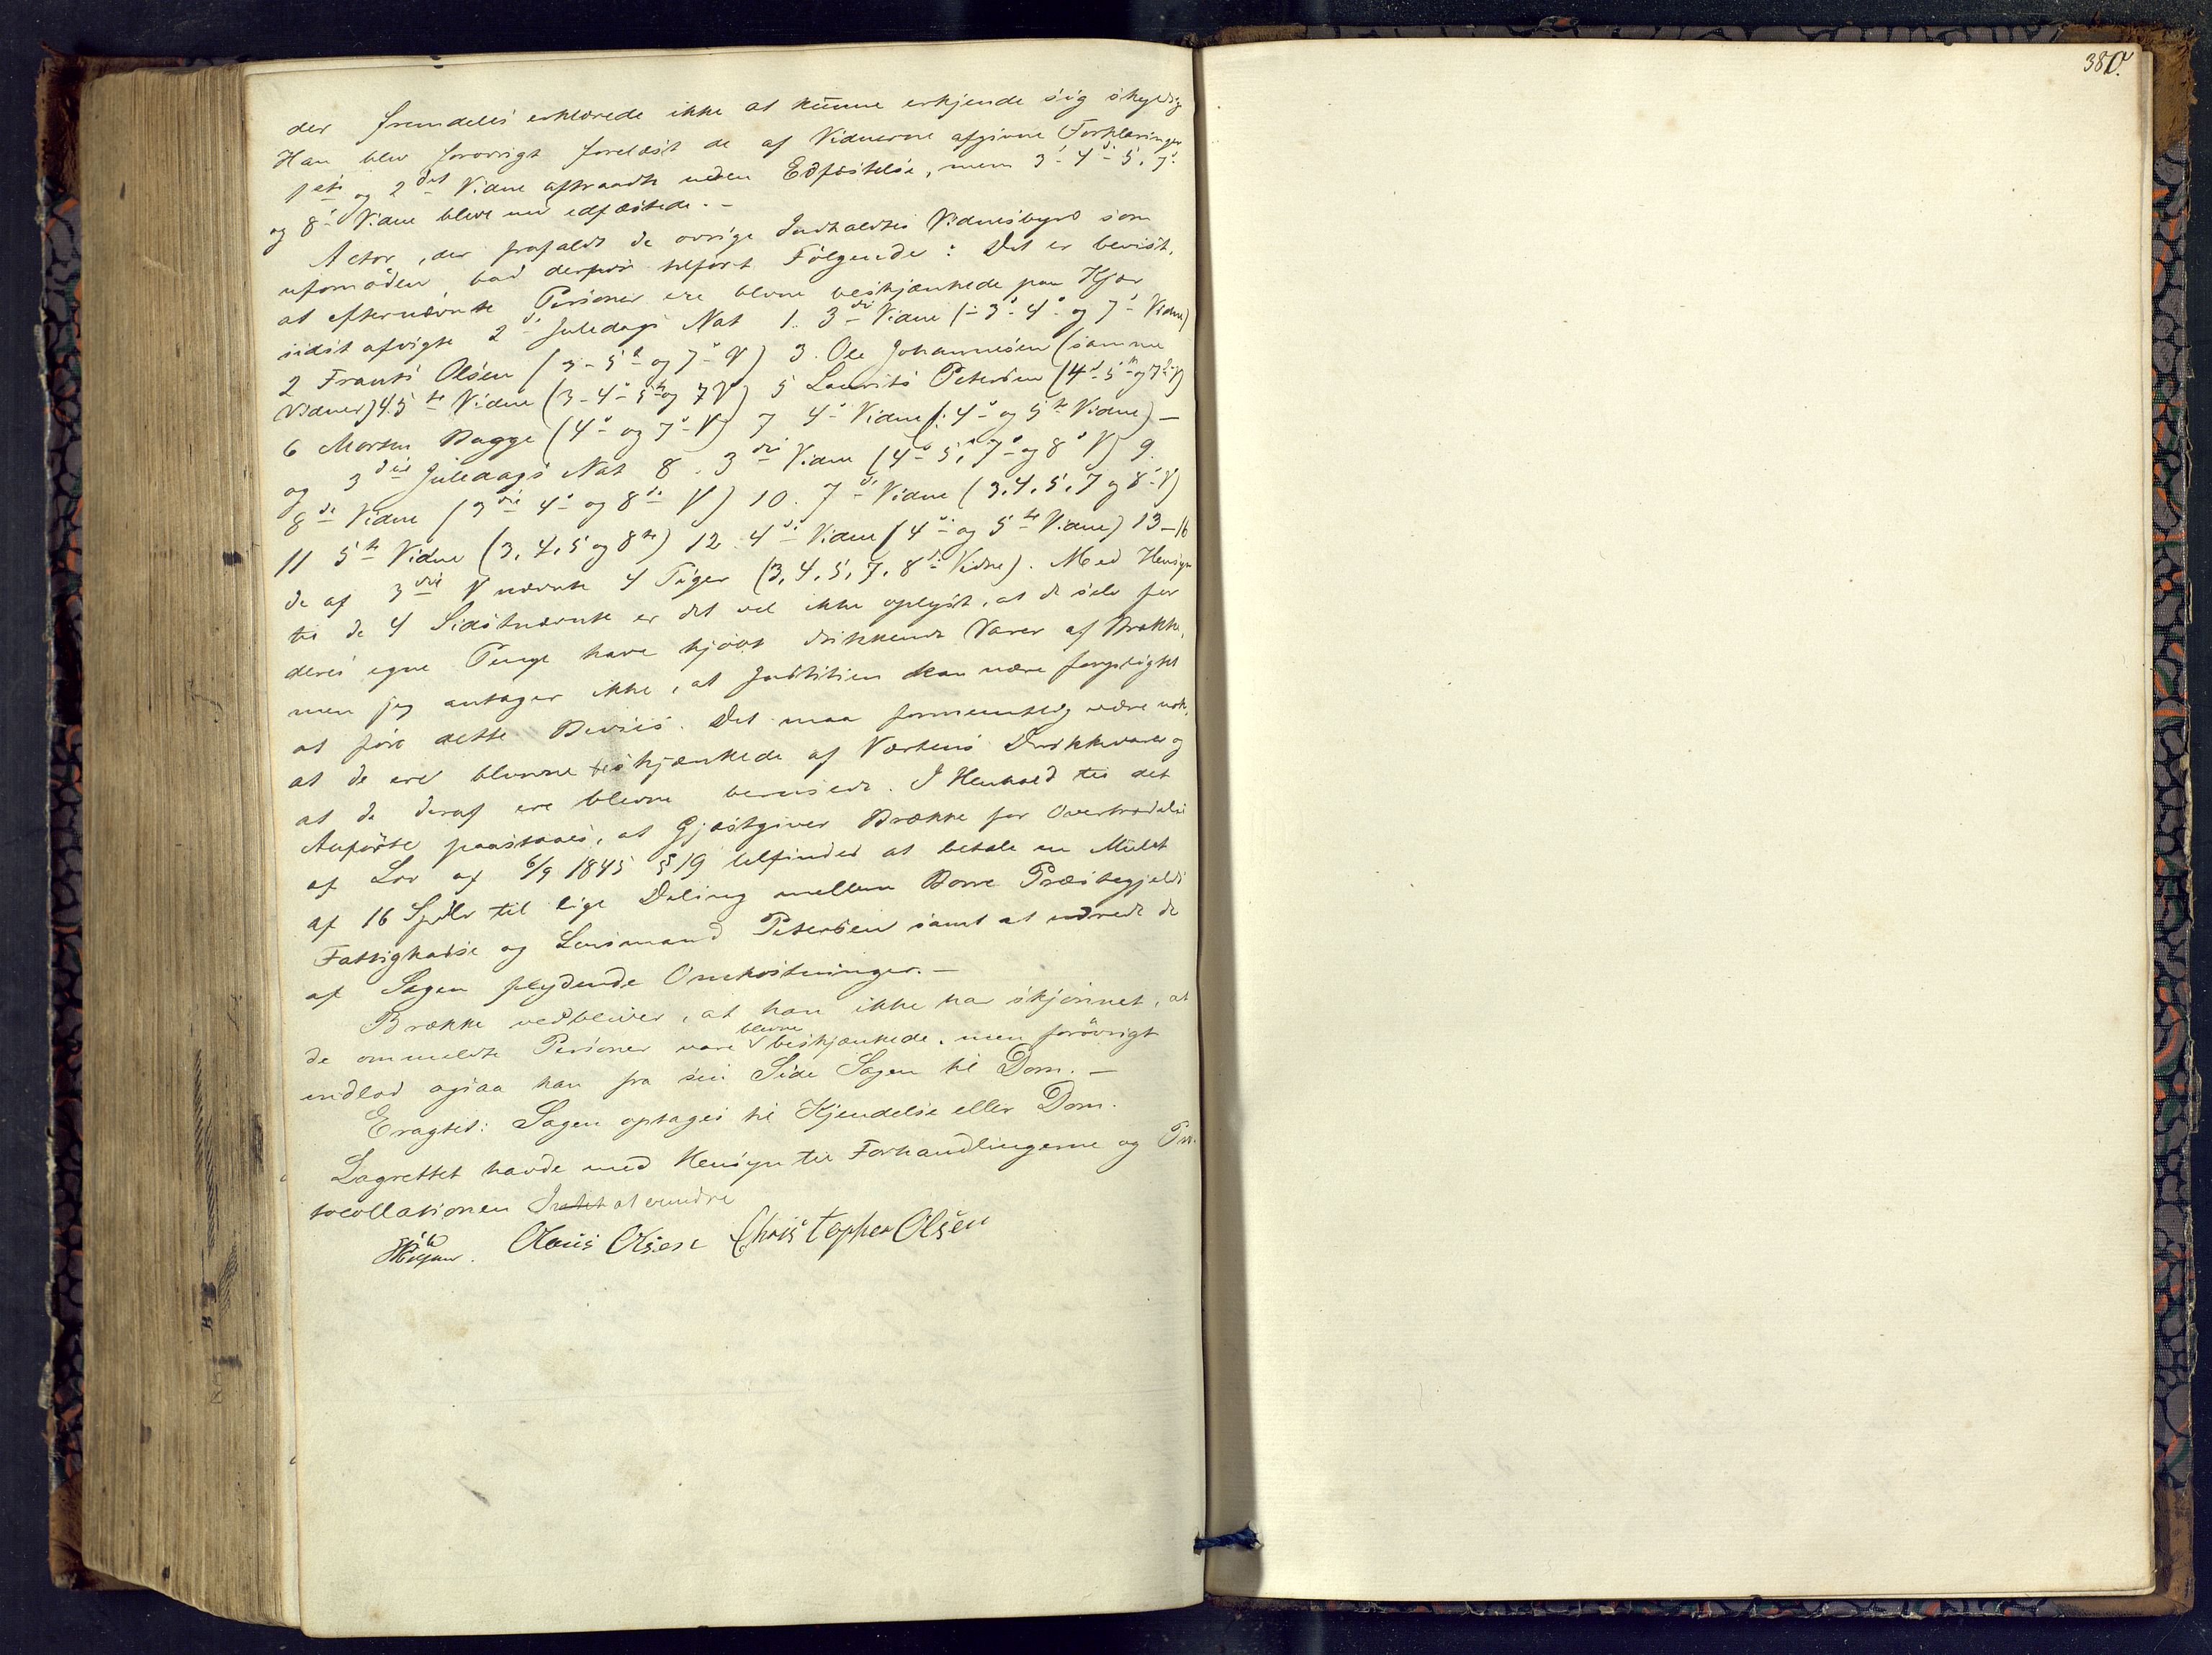 der fremdeles erklærede ikke at kunne erkjende sig skyldig
Han blev forøvrigt forelæst de af Vidnerne afgivne Forklaringer
1ste og 2det Vidne aftraadte uden Edfæstelse, mens 3die 4de 5, 7de
og 8de Vidne bleve nu edfæstede. -
Actor, der frafaldt de øvrige Indkaldtes Vidnesbyrd som
ufornøden, bad derpaa tilført Følgende: Det er bevist,
at efternævnte Personer ere blevne beskjænkede paa Kjær
sidst afvigte 2den Juledags Nat 1. 3die Vidne (3. 4. og 7de Vidne)
2 Frants Olsen (3 - 5te og 7de V) 3. Ole Johannesen (samme
Vidner) 4. 5te Vidne (3 - 4de - 5te og 7 V) 5 Laurits Petersen (4de 5te og 7de V)
6 Morten Bagge (4de og 7de V) 7 4de Vidne (: 4de og 5te Vidne) -
og 3die Juledags Nat 8. 3die Vidne (4de 5, 7de og 8de V) 9.
8de Vidne (3die 4de og 8de V) 10. 7de Vidne (3, 4, 5, 7 og 8de V)
11 5te Vidne (3, 4, 5 og 8de) 12. 4de Vidne (4de og 5te Vidne) 13-16
de af 3die V nævnte 4 Piger (3, 4, 5, 7, 8de Vidne). Med Hensyn
til de 4 Sidstnævnte er det vel ikke oplyst, at de selv for
deres egne Penge have kjøbt drikkende Varer af Brække,
men jeg antager ikke, at Justitien kan være forpligtet
at føre dette Beviis. Det maa formentlig være nok,
at de ere blevne beskjænkede af Værtens Drikkevarer og
at de deraf ere blevne berusede. I Henhold til det
Anførte paastaaes, at Gjæstgiver Brække for Overtrædelse
af Lov af 6/9 1845 § 19 tilfindes at betale en Mulct
af 16 Spdlr til lige Deling mellem Borre Præstegjelds
Fattigkasse og Lensmand Petersen samt at udrede de
af Sagen flydende Omkostninger. -
Brække vedbliver, at han ikke har skjønnet, at
de ommeldte Personer vare blevne beskjænkede, men forøvrigt
indlod ogsaa han fra sin Side Sagen til Dom. -
Eragtet: Sagen optages til Kjendelse eller Dom.
Lagrettet havde med Hensyn til Forhandlingerne og Pro-
tocollationen Intet at erindre
Olaus Olsen Christopher Olsen
380.